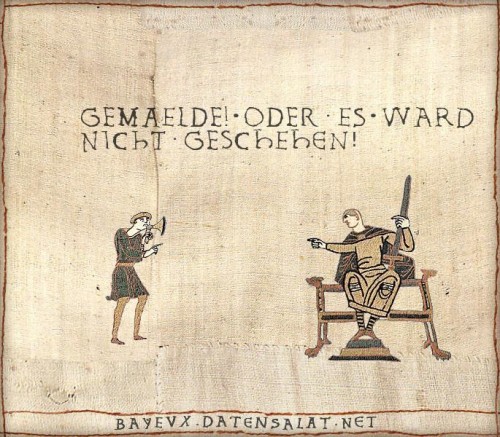 GEMAELDE! · ODER · ES · WARD
NIChT · GESChEhEN!
BAYEVX.DATENSALAT.NET